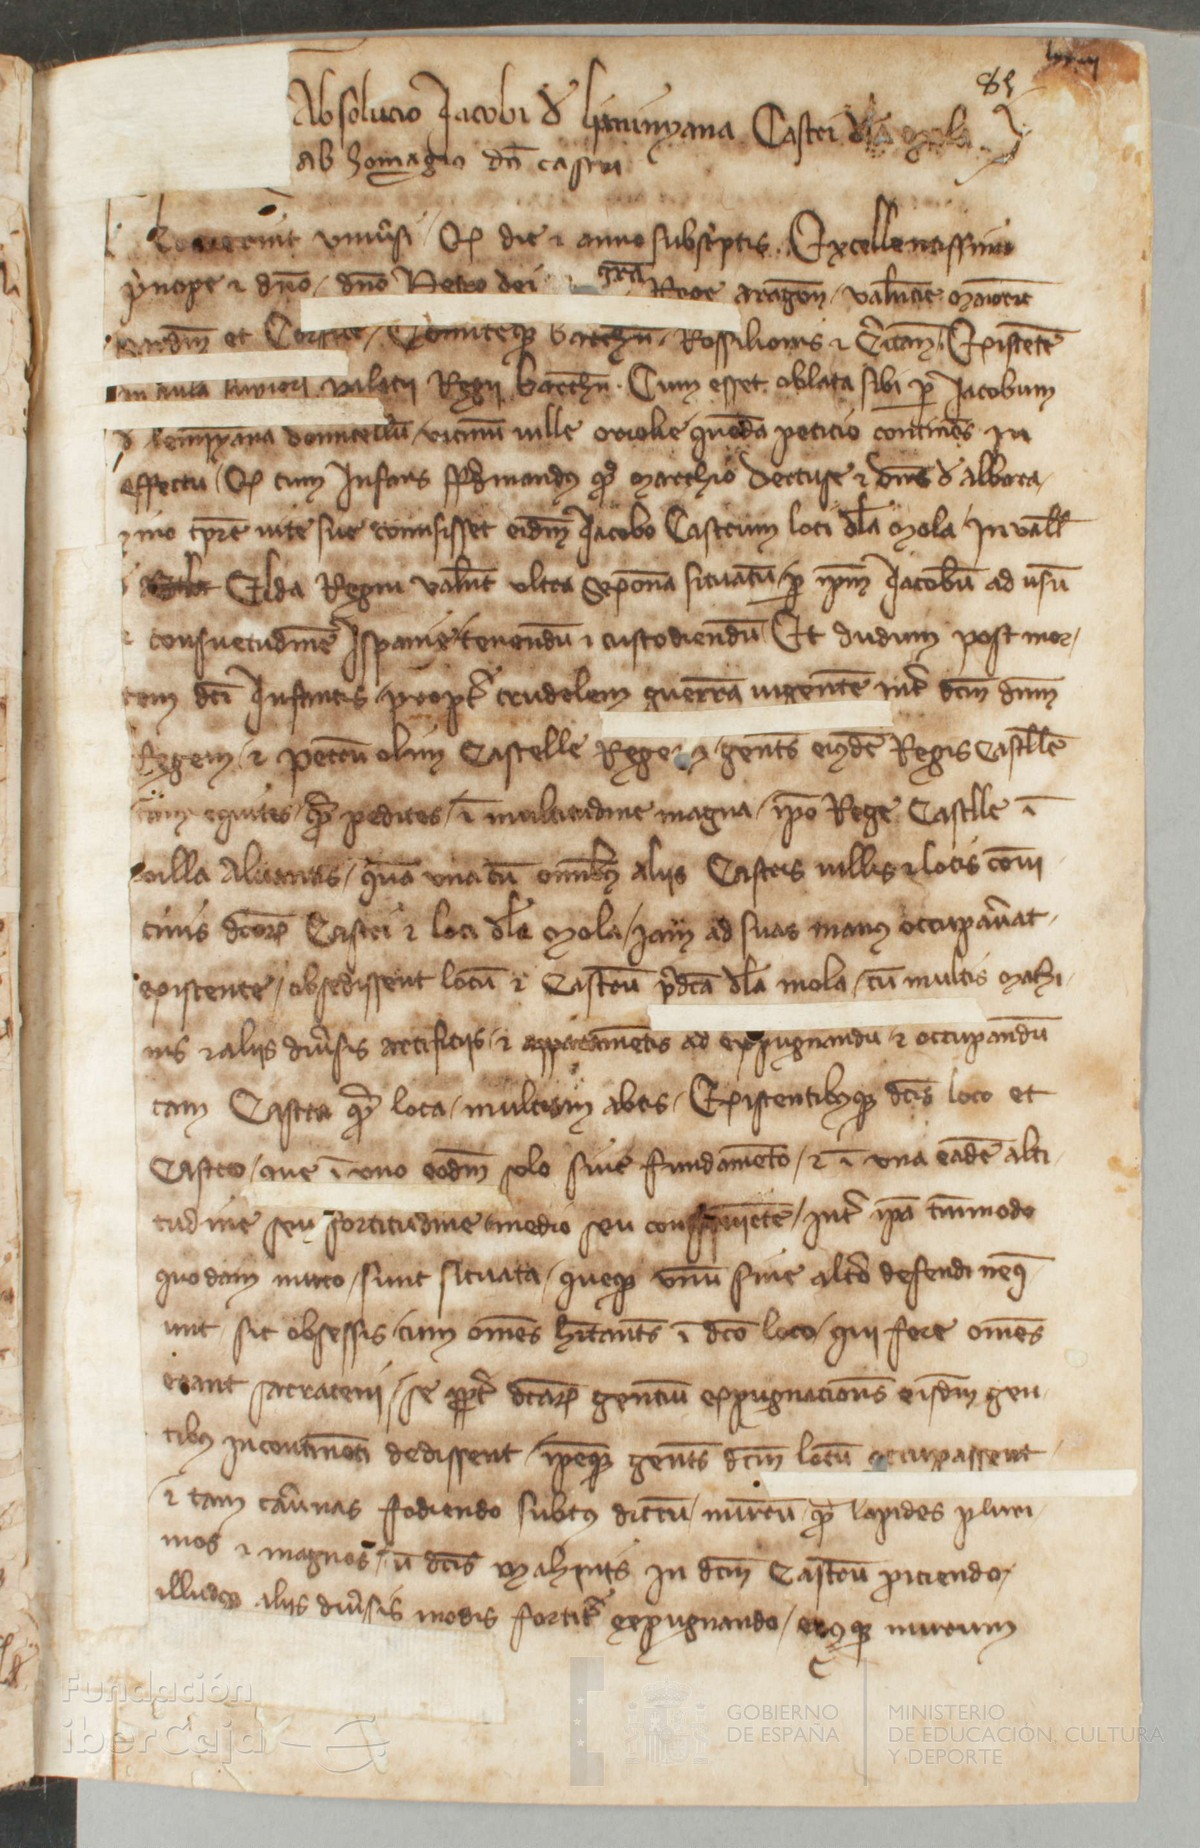 85
Absolucio Jacobi d' liminyana Castri dla Mola
ab homagio dci castri
Noverint univsi Qd die et anno subscriptis Excellentissimo
principe et dno dno Petro dei gra Rege aragon valencie Maioric
Sardin et Corsice Comiteq barchn Rossilionis et Ceritan Existete
in aula palacii Regii barchn Cum esset oblata sibi p Jacobum
d' liminyana domicellu vicinu ville oriole queda peticio continens in
effectu Qd cum Infans fferdinandus qd Marchio Dertuse et dns d' albarra
cino tpre vite sue comisisset eidm Jacobo Castrum loci dla Mola in vall
d' Elda Regni valent ultra Sexona situatu p ipm Jacobu ad usu
et consuetudine Ispanie tenendu et custodiendu Et dudum post mor
tem dci Infantis propt crudelem guerra vigente int dcm dnm
Regem et petru olim Castelle Regem gents eiusde Regis Castelle
tam equites q pedites i multitudine magna ipo Rege Castelle i
villa Alacantis qua una cu omibus aliis Castris villis et locis covi
cinis dcor Castri et loci dla Mola jam ad suas manus occupaverat
existente obsedissent locu et Castru pdca dla mola cu multis Mahi
nis et aliis divsis artificiis et apparametis ad expugnandu et occupandu
tam Castra q loca multum abtis Existentibusq dcis loco et
Castro que i uno eodm solo sive fundameto et i una eade alti
tudine seu fortitudine medio seu int ipa tmmodo
quodam muro sunt situata queq unu sine alto defendi neq
unt sic obsessis cum omes hitants i dco loco qui fere omes
erant sarraceni se ppt dcar genciu expugnacions eisdm gen
tibus incontineti dedissent ipeq gents dcm locu occupassent
et tam cavnas fodiendo subtus dictu muru q lapides pluri
mos et magnos cu dcis Mahinis in dcm Castru piciendo
illudq aliis divsis modis fortit expugnando eiusq murum
Fundación
iberCaja
GOBIERNO
DE ESPAÑA
MINISTERIO
DE EDUCACIÓN, CULTURA
Y DEPORTE